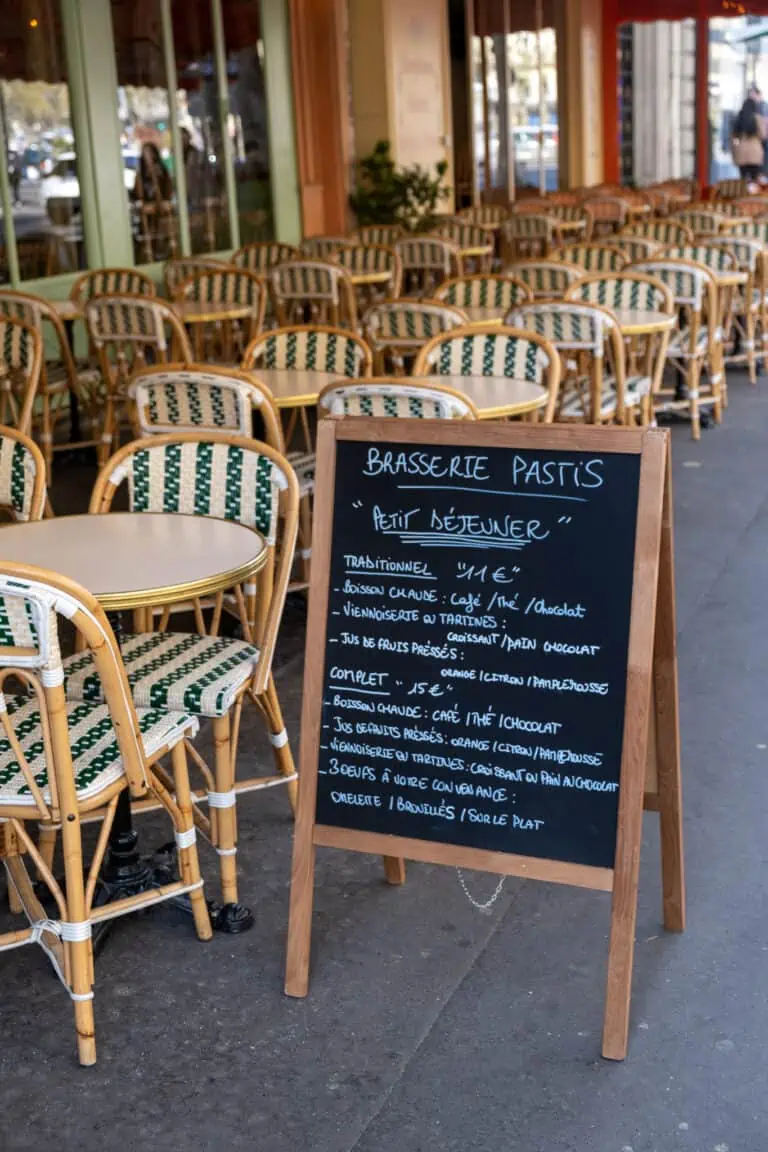 BRASSERIE PASTIS
"PETIT DÉJEUNER"
TRADITIONNEL "11€"
- BOISSON CHAUDE : Café / Thé / Chocolat
- VIENNOISERIE OU TARTINES :
CROISSANT / PAIN CHOCOLAT
- JUS DE FRUIS PRÉSSÉS :
ORANGE / CITRON / PAMPLEMOUSSE
COMPLET "15€"
- BOISSON CHAUDE : CAFÉ / THÉ / CHOCOLAT
- JUS DE FRUITS PRÉSSÉS : ORANGE / CITRON / PAMPLEMOUSSE
- VIENNOISERIE OU TARTINES : CROISSANT OU PAIN AU CHOCOLAT
- 3 OEUFS À VOTRE CONVENANCE :
OMELETTE / BROUILLÉS / SUR LE PLAT